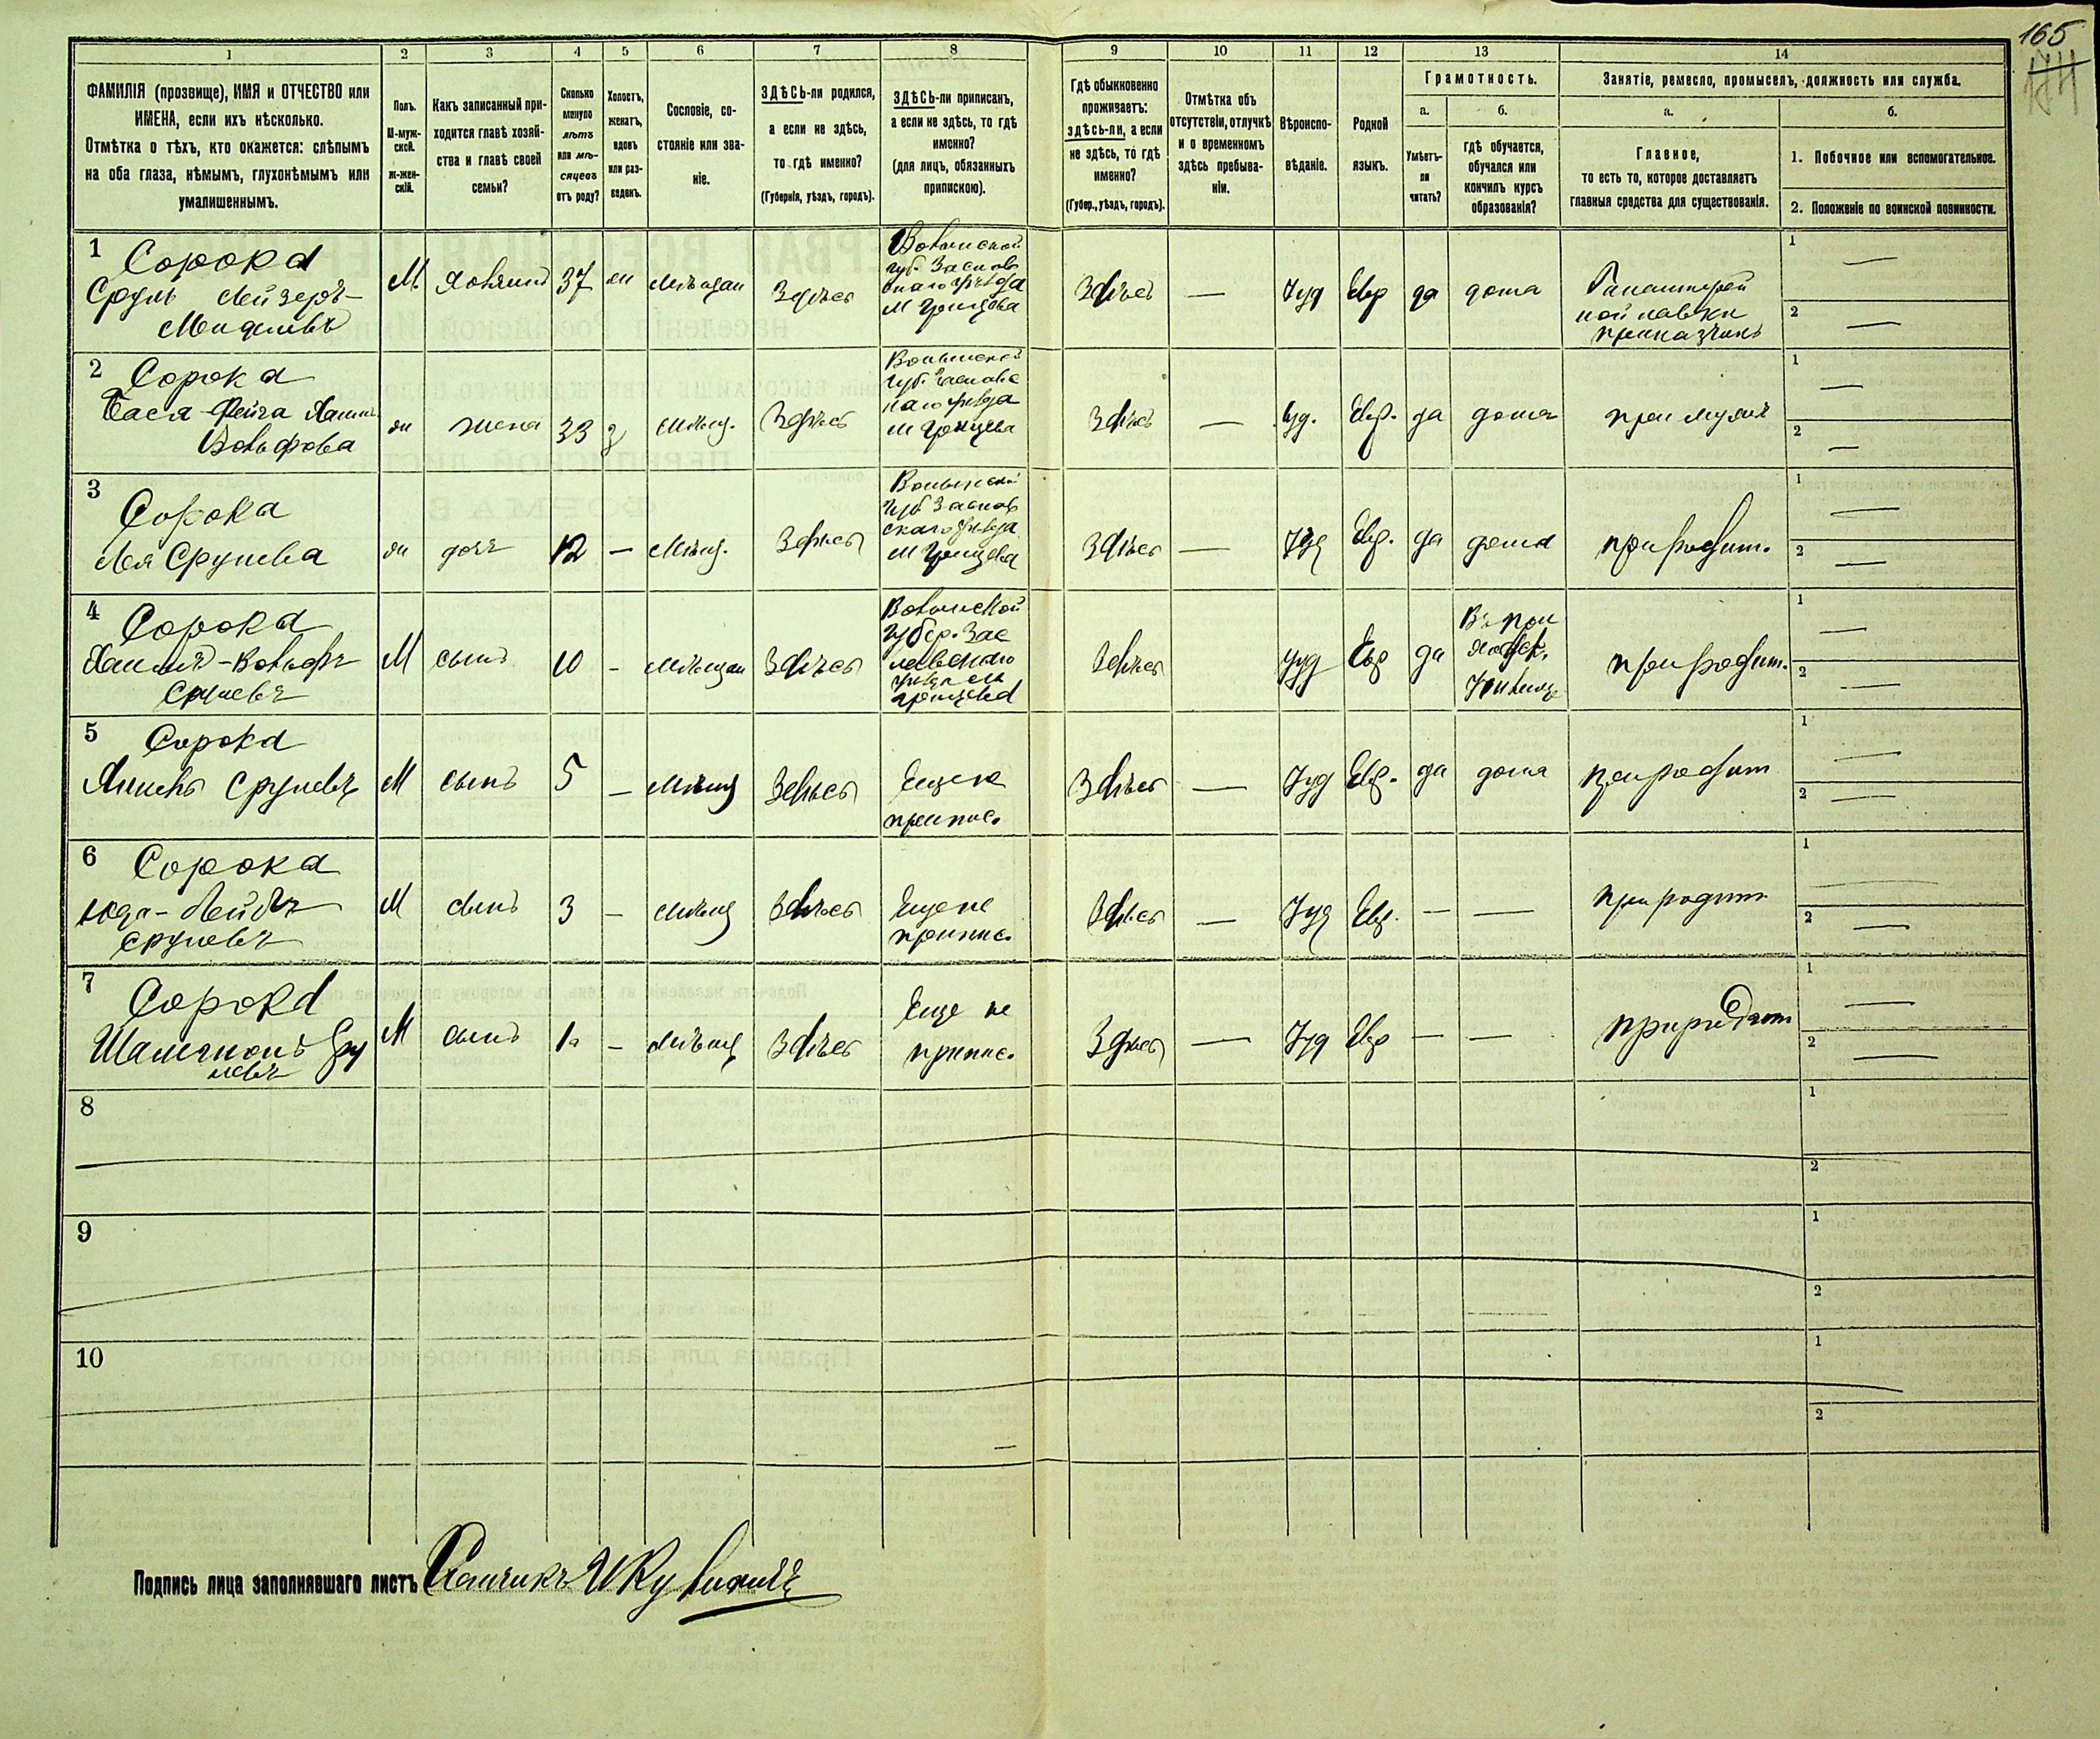 165
1
2
3
4
5
6
7
8
9
10
11
12
13
14
ФАМИЛІЯ (прозвище), ИМЯ и ОТЧЕСТВО или
ИМЕНА, если ихъ нѣсколько.
Отмѣтка о тѣхъ, кто окажется: слѣпымъ
на оба глаза, нѣмымъ, глухонѣмымъ или
умалишеннымъ.
Полъ.
М-муж-
ской.
Ж-жен-
скій.
Какъ записанный при-
ходится главѣ хозяй-
ства и главѣ своей
семьи?
Сколько
минуло
лѣтъ
или мѣ-
сяцевъ
отъ роду?
Холостъ,
женатъ,
вдовъ
или раз-
веденъ.
Сословіе, со-
стояніе или зва-
ніе.
ЗДѢСЬ-ли родился,
а если не здѣсь,
то гдѣ именно?
(Губернія, уѣздъ, городъ).
ЗДѢСЬ-ли приписанъ,
а если не здѣсь, то гдѣ
именно?
(для лицъ, обязанныхъ
припискою).
Гдѣ обыкновенно
проживаетъ:
здѣсь-ли, а если
не здѣсь, то гдѣ
именно?
(Губер., уѣздъ, городъ).
Отмѣтка объ
отсутствіи, отлучкѣ
и о временномъ
здѣсь пребыва-
ніи.
Вѣроиспо-
вѣданіе.
Родной
языкъ.
Грамотность.
а.
Умѣетъ-
ли
читать?
б.
гдѣ обучается,
обучался или
кончилъ курсъ
образованія?
Занятіе, ремесло, промыселъ, должность или служба.
а.
Главное,
то есть то, которое доставляетъ
главныя средства для существованія.
б.
1. Побочное или вспомогательное.
2. Положеніе по воинской повинности.
1
Сорока
Сруль Лейзеръ-
Менделевъ
М
хозяинъ
37
ж
мѣщан
Здѣсь
Волынской
губ. Заслав
скаго уѣзда
М Грицева
Здѣсь
—
Іуд
Евр
да
дома
Галантерей
ной лавки
приказчикъ
1
—
2
—
2 Сорока
Бася-Фейга Хаим
Вольфова
ж
жена
33
з
мѣщ.
Здѣсь
Волынской
губ. Заславс
каго уѣзда
М Грицева
Здѣсь
—
Іуд.
Евр.
да
дома
при мужѣ
1
—
2
—
3
Сорока
Лея Срулева
ж
дочь
12
—
Мѣщ.
Здѣсь
Волынской
губ Заслав
скаго уѣзда
М Грицева
Здѣсь
—
Іуд
Евр.
да
дома
при родит.
1
—
2
—
4 Сорока
Хаимъ-Вольфъ
Срулевъ
М
сынъ
10
-
мѣщан
Здѣсь
Волынской
губер. Зас
лавскаго
уѣзда м
Грицева
Здѣсь
Іуд
Евр
да
при родит.
1
—
2
—
5 Сорока
Янкель Срулевъ
М
сынъ
5
—
мѣщ
Здѣсь
Еще не
припис.
Здѣсь
—
Іуд
Евр.
да
дома
при родит
1
—
2
—
6 Сорока
Юда-Лейбъ
Срулевъ
М
сынъ
3
—
мѣщ
Здѣсь
Еще не
припис.
Здѣсь
—
Іуд
Евр.
—
—
при родит
1
—
2
—
7
Сорока
Шамсионъ Сру
левъ
М
сынъ
1
—
мѣщ
Здѣсь
Еще не
припис.
Здѣсь
—
Іуд
Евр
—
—
при родит
1
—
2
—
8
1
2
9
1
2
10
1
2
Подпись лица заполнявшаго листъ